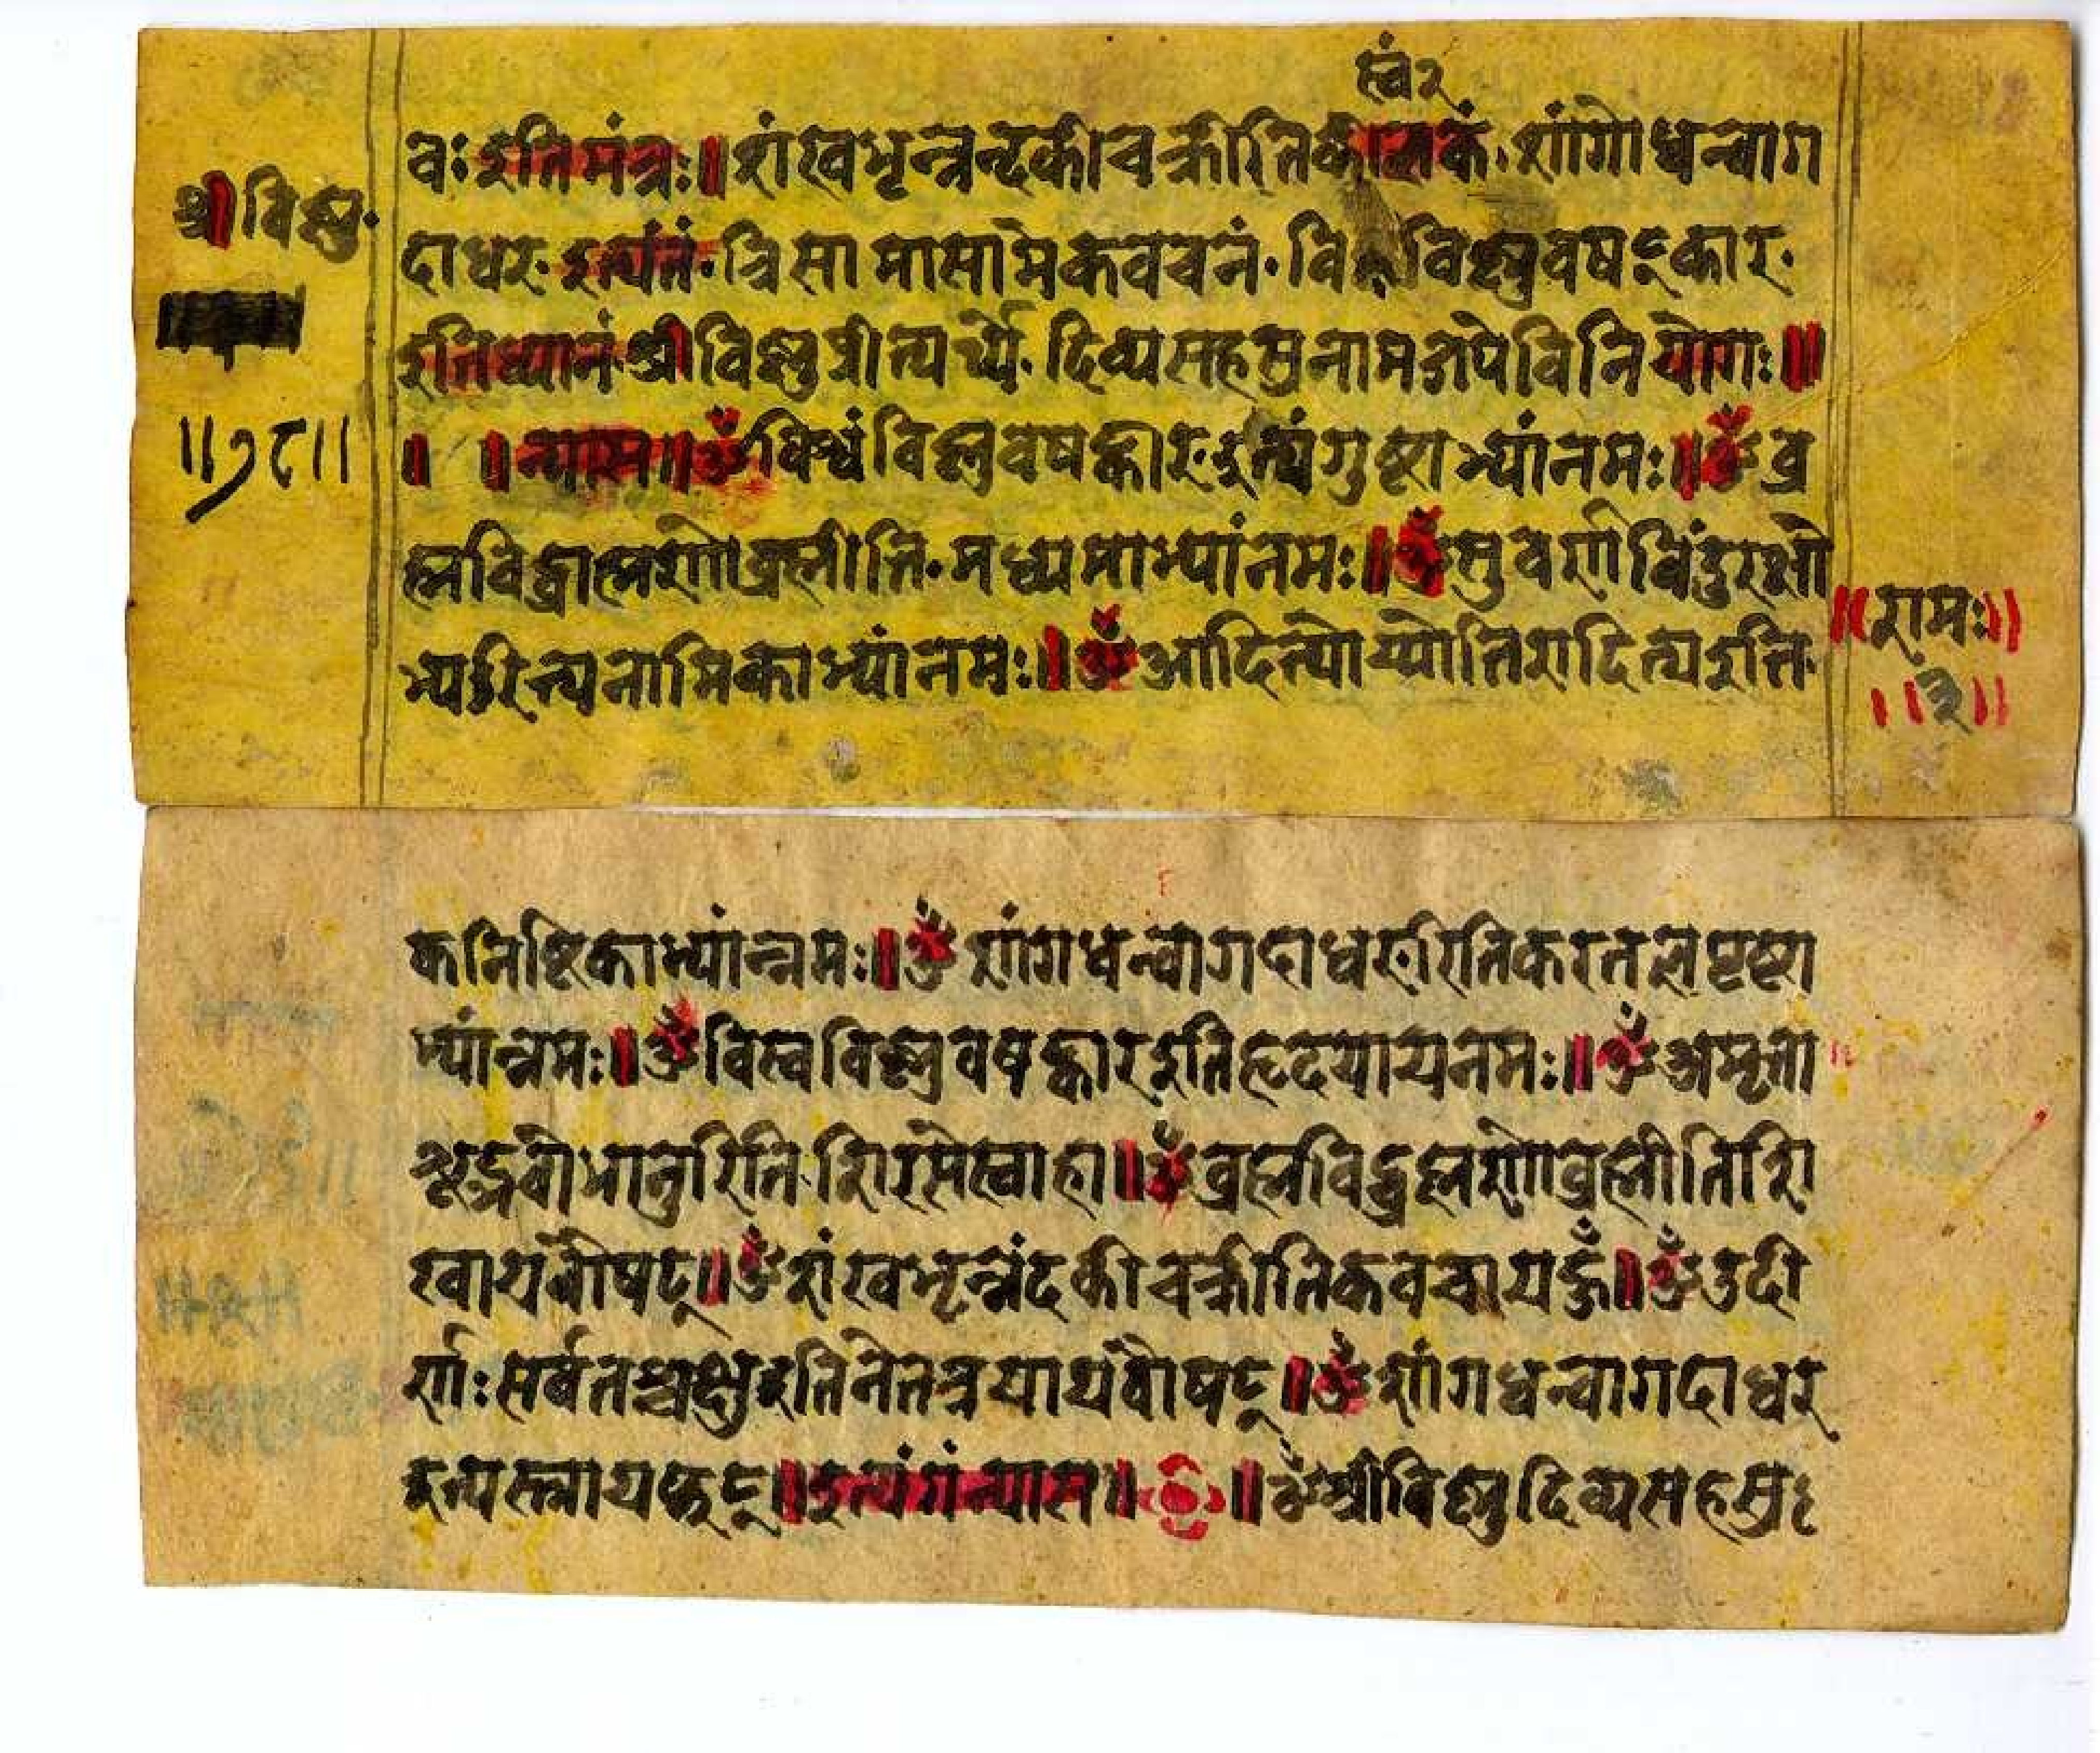 स्वं२
वः इतिमंत्रः॥ शंखभृन्नन्दकीचक्रीतिकीलकं. शांर्गोधन्वाग
श्रीविष्णु.
दाधर. इत्यंतं. त्रिसामासामेकवचनं. विष्णुवषट्कार.
इतिध्यानं श्रीविष्णुप्रीत्यर्थ्ये. दिव्यसहस्रनामजपेविनियोगः॥
॥७८॥
॥ ॥न्यास॥ ॐ विश्वंविष्णुवषट्कार. इत्यंगुष्टाभ्यांनमः॥ ॐ ब्र
ह्मविद्ब्राह्मणोब्रह्मीति. मध्यमाभ्यांनमः॥ ॐ सुवर्णविंदुरक्षो
॥रामः॥
भ्यइत्यनामिकाभ्यांनमः॥ ॐ आदित्योज्योतिरादित्यइति.
॥३॥
कनिष्टिकाभ्यांन्नमः॥ ॐ शांर्गधन्वागदाधरइरितिकरतलपृष्टा
भ्यांन्नमः॥ ॐ विस्वविष्णुवषट्कारइतिहृदयायनमः॥ ॐ अमृता
शूद्भवोभानुरिति. शिरसेस्वाहा॥ ॐ ब्रह्मविद्ब्रह्मणोब्रह्मीतिशि
खायवौषट्॥ ॐ शंखभृन्नंदकीचक्रीतिकवचायहुँ॥ ॐ उदी
र्णः सर्वतश्चक्षुइतिनेतत्रयायवौषट्॥ ॐ शांर्गधन्वागदाधर
इत्यस्त्रायफट्॥ इत्यंगंन्यास॥ ॥ ॐ श्रीविष्णुदिव्यसहस्रः